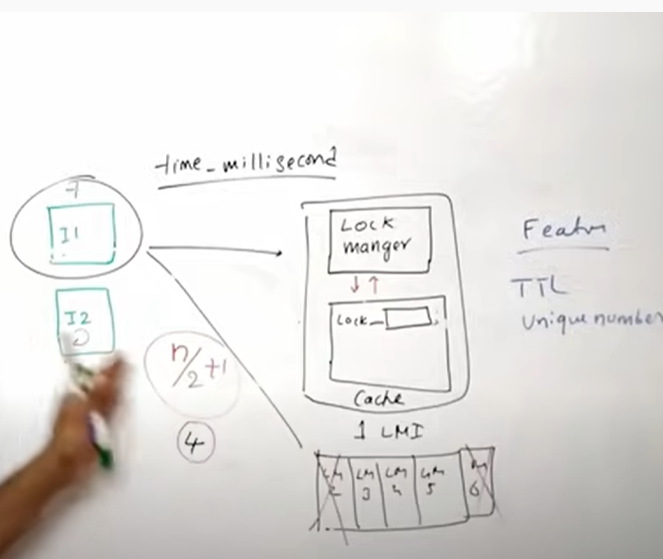 time_millisecond
I1
I2
n/2+1
4
Lock
manger
Lock_
Cache
1 LMI
LM
3
LM
4
LM
5
6
Featur
TTL
Unique number